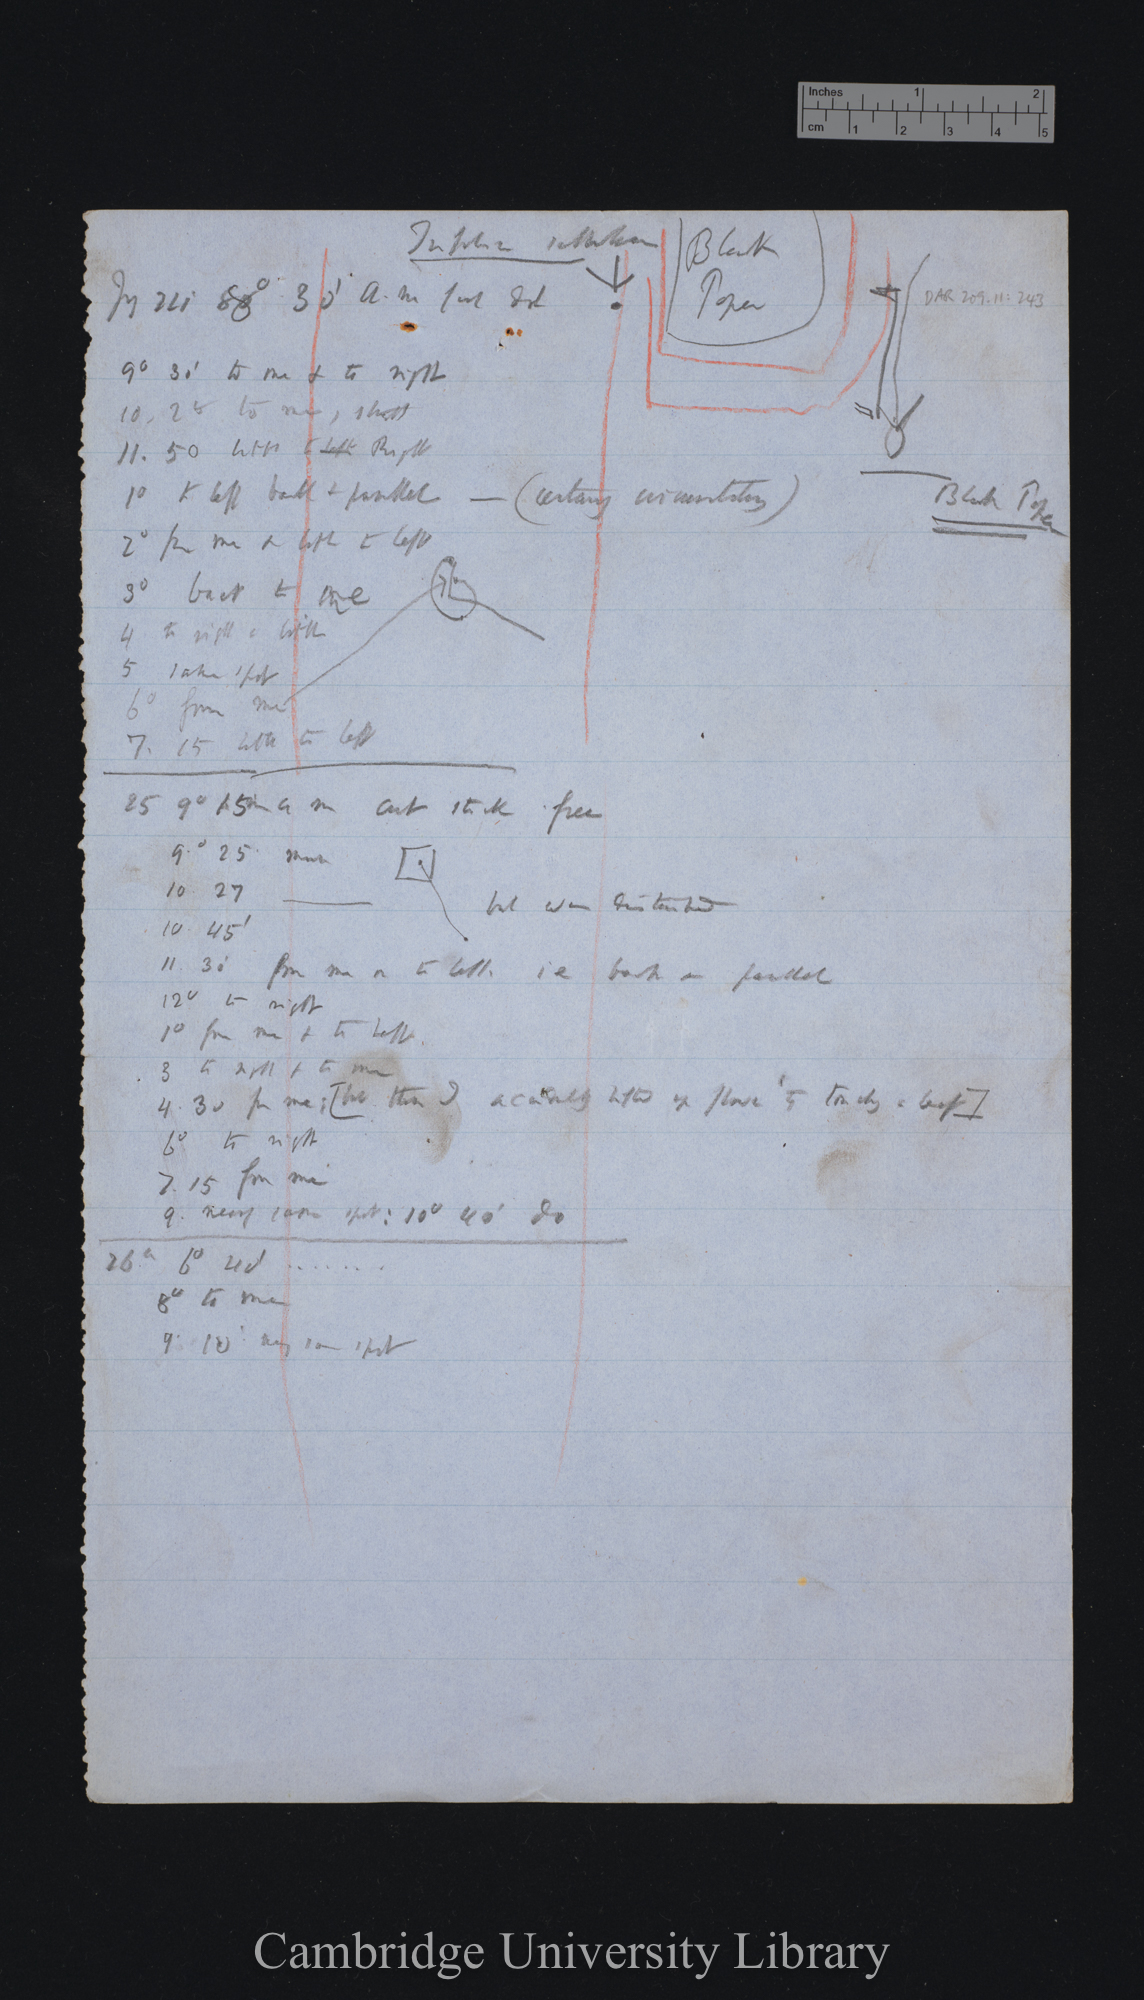 Inches 1 2
cm 1 2 3 4 5
Trifolium
Black
Paper
DAR 209.11: 243
Jy 24 8° 30' A.m first dot
9° 30' to me & to right
10. 20 to me, short
11. 50 little to left Right
1° to left back & parallel — (certainly circumnutating)
Black Paper
2° from me & little to left
3° back to me
4 to right a little
5 same spot
6° from me
7. 15 little to left
25 9° 15m a m cut stick free
9° 25
10 27 but was disturbed
10 45'
11. 30 from me & to left. i.e back & parallel
12° to right
1° from me & to left.
3 to right & to me
4. 30 from me; [but then I accidentally lifted up flower by touching a leaf]
6° to right
7. 15 from me
9. nearly same spot: 10° 40' do
26th 6° 40' .......
8° to me
9. 10' nearly same spot
Cambridge University Library